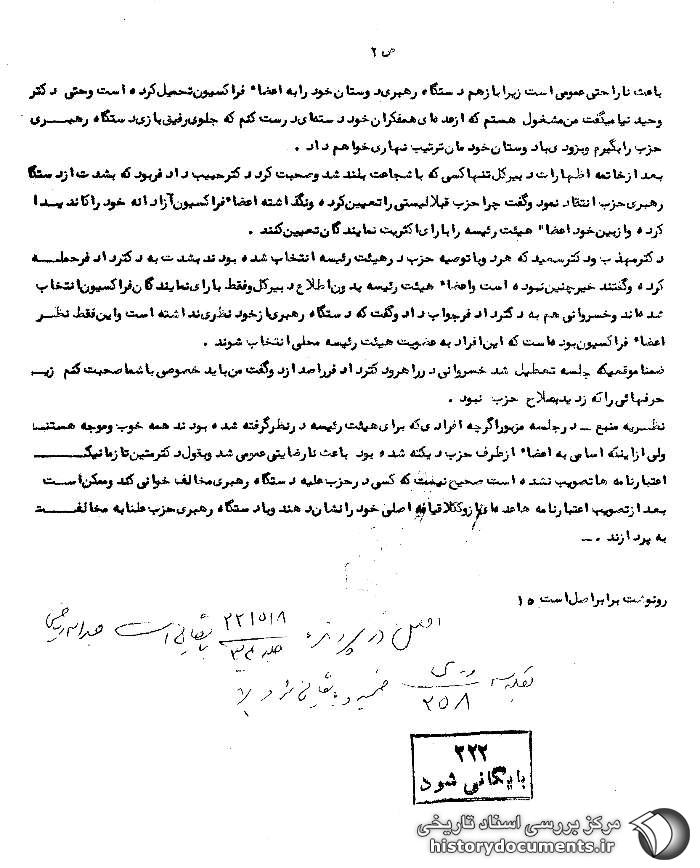 ص ۲
باعث ناراحتی عمومی است زیرا بازهم دستگاه رهبری دوستان خود را به اعضاء فراکسیون تحمیل کرده است وحتی دکتر
وحید نیا میگفت من مشغول هستم که ازعده ای همفکران خود دسته ای درست کنم که جلوی رفیق بازی دستگاه رهبری
حزب را بگیرم وبزودی بادوستان خود مان ترتیب نهاری خواهم داد .
بعد ازخاتمه اظهارات دبیرکل تنها کسی که با شجاعت بلند شد وصحبت کرد دکترحبیب داد فربود که بشدت ازدستگاه
رهبری حزب انتقاد نمود وگفت چرا حزب قبلا لیستی راتعیین کرده ونگذاشته اعضاء فراکسیون آزادانه خود را کاندیدا
کرده وازبین خود اعضاء هیئت رئیسه را با رای اکثریت نمایندگان تعیین کنند .
دکترمهذب ودکترسعید که هردو با توصیه حزب درهیئت رئیسه انتخاب شده بودند بشدت به دکترداد فرحمله
کرده وگفتند خیرچنین نبوده است واعضاء هیئت رئیسه بدون اطلاع دبیرکل وفقط با رای نمایندگان فراکسیون انتخاب
شده اند وخسروانی هم به دکترداد فرجواب داد وگفت که دستگاه رهبری ازخود نظری نداشته است واین فقط نظر
اعضاء فراکسیون بوده است که این افراد به عضویت هیئت رئیسه محلی انتخاب شوند .
ضمنا موقعیکه جلسه تعطیل شد خسروانی درراهرو دکترداد فررا صدا زد وگفت من باید خصوصی با شما صحبت کنم زیرا
حرفهائی را که زدید بصلاح حزب نبود .
نظریه منبع ـ درجلسه مزبور اگرچه افرادی که برای هیئت رئیسه درنظرگرفته شده بودند همه خوب وموجه هستند
ولی ازاینکه اسامی به اعضاء ازطرف حزب دیکته شده بود باعث نارضایتی عمومی شد وبقول دکترمتین تا زمانیکه
اعتبارنامه ها تصویب نشده است صحیح نیست که کسی درحزب علیه دستگاه رهبری مخالف خوانی کند وممکن است
بعد ازتصویب اعتبارنامه ها عده ای ازوکلا قیافه اصلی خود را نشان دهند وبا دستگاه رهبری حزب علنا به مخالفت
به پردازند . ـ
رونوشت برابراصل است ۱۵
اصل در پرونده ۲۲۱۵۱۸
بایگانی است
۲۵۸
۲۲۲
بایگانی شود
مرکز بررسی اسناد تاریخی
historydocuments.ir